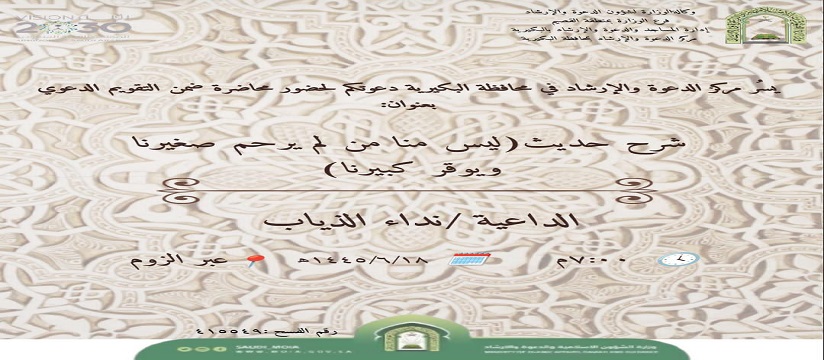 وكالة الوزارة لشؤون الدعوة والإرشاد
فرع الوزارة بمنطقة القصيم
إدارة المساجد والدعوة والإرشاد بالبكيرية
مركز الدعوة والإرشاد بمحافظة البكيرية
VISION رؤية
2030
يسُر مركز الدعوة والإرشاد في محافظة البكيرية دعوتكم لحضور محاضرة ضمن التقويم الدعوي
بعنوان:
شرح حديث (ليس منا من لم يرحم صغيرنا
ويوقر كبيرنا)
الداعية /نداء الذياب
٧:٠٠م
١٤٤٥/٦/١٨هـ
عبر الزوم
رقم الفسح :٤١٥٥٤٩
وزارة الشؤون الإسلامية والدعوة والإرشاد
MINISTRY OF ISLAMIC AFFAIRS, DAWAH AND GUIDANCE
SAUDI_MOIA
WWW.MOIA.GOV.SA